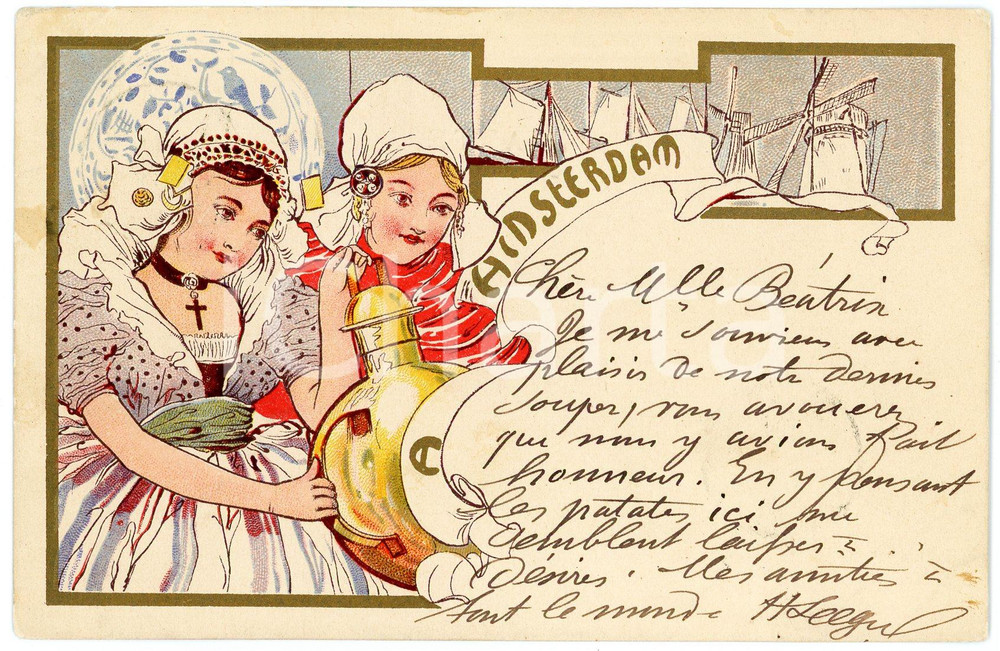 AMSTERDAM
A
Chère Mlle Béatrix
Je me souviens avec
plaisir de notre dernier
souper, vous avouerez
que nous y avions fait
honneur. En y pensant
les patates ici me
semblent laisser à
désirer. Mes amitiés à
tout le monde